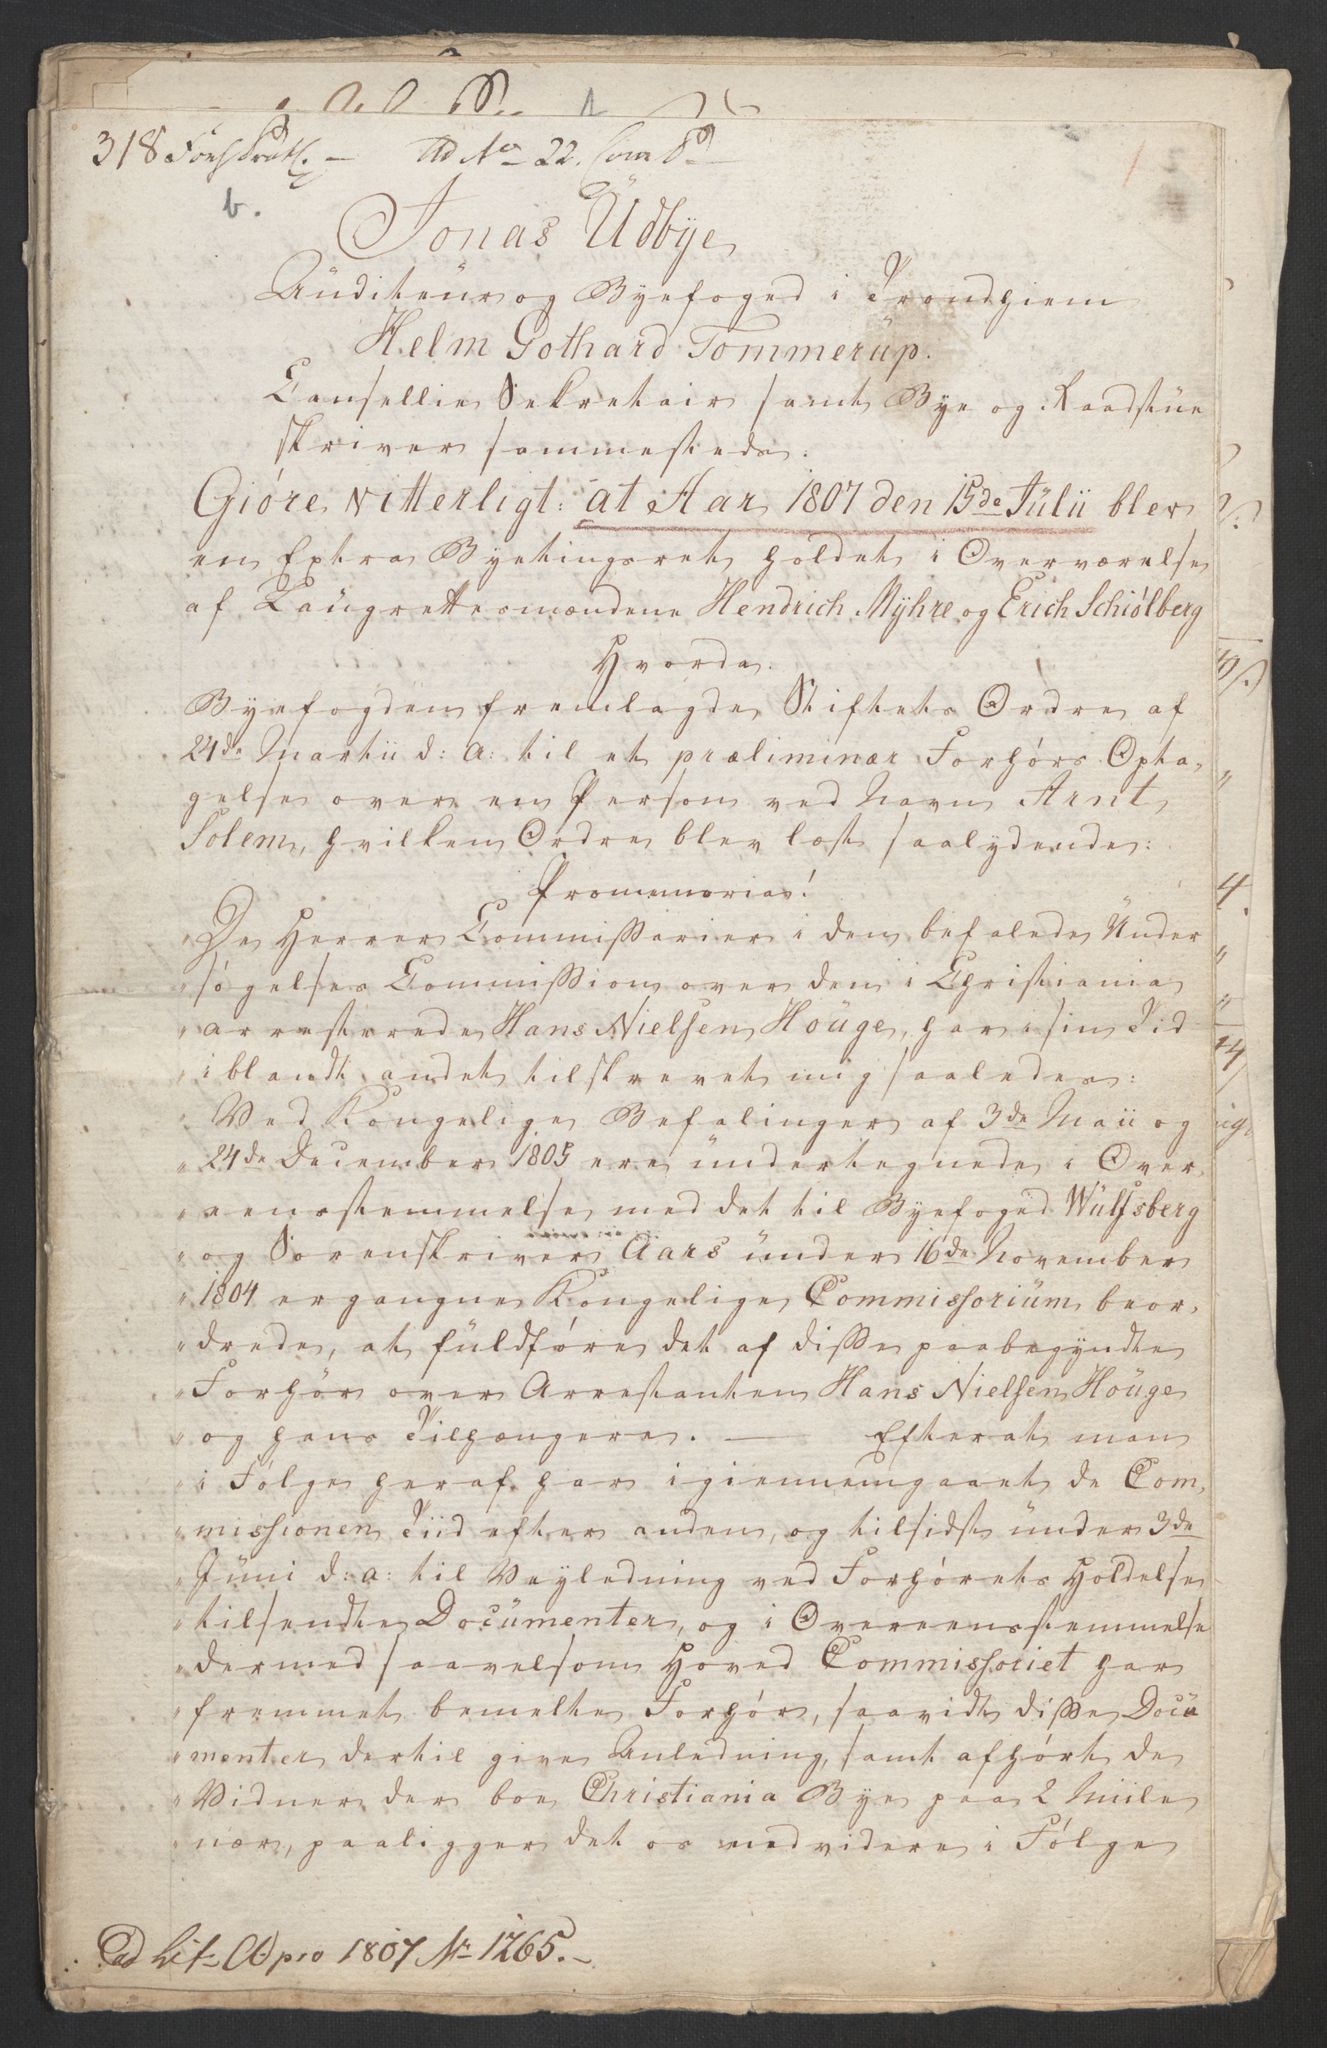 318 Ad No 22.
b.
1
Jonas Üdbye
Auditeur og Byefoged i Trondhiem
Helm Gothard Tommerüp.
Cansellie Sekretair samt Bye og Raadstüe
skriver sammesteds.
Giöre vitterligt: at Aar 1807 den 15de Jülii blev
en Extra Byetingsret holdet i Overværelse
af Laugrettesmændene Hendrich Mÿhre og Erich Schiölberg
Hvorda.
Byefogden fremlagde Stiftets Ordre af
24de Martii d: a: til et præliminær Forhörs Opta,
gelse over en Person ved Navn Arnt
Solem, hvilken Ordre blev læst saalydende:
Promemoria!
" De Herrer Commissarier i den befalede Under
" sögelses Commission over den i Christiania
" arresterede Hans Nielsen Höüge, har i sin Tid
" iblandt andet tilskrevet mig saaledes:
" Ved Kongelige Befalinger af 3de Maii og
" 24de December 1805 ere ündertegnede i Over,
" eensstemmelse med det til Byefoged Wülfsberg
" og Sorenskriver Aars ünder 16de November
" 1804 ergangne Kongelige Commissoriüm beor,
" drede, at füldföre det af disse paabegyndte
" Forhör over Arrestanten Hans Nielsen Höüge
" og hans Tilhængere. — Efterat man
" i Fölge heraf har igiennemgaaet de Com,
" missionen Tiid efter anden, og tilsidst ünder 3de
" Jüni d: a: til Veyledning ved Forhörets Holdelse
" tilsendte Documenter, og i Overeensstemmelse
" dermed saavelsom Hoved Commissoriet har
" fremmet bemelte Forhör, saavidt disse Docü
" menter dertil give Anledning, samt afhört de
" Vidner der boe Christiania Bye paa 2 Miile
" nær, paaligger det os med videre i Fölge
ad Lit. A pro 1807 No 1265.